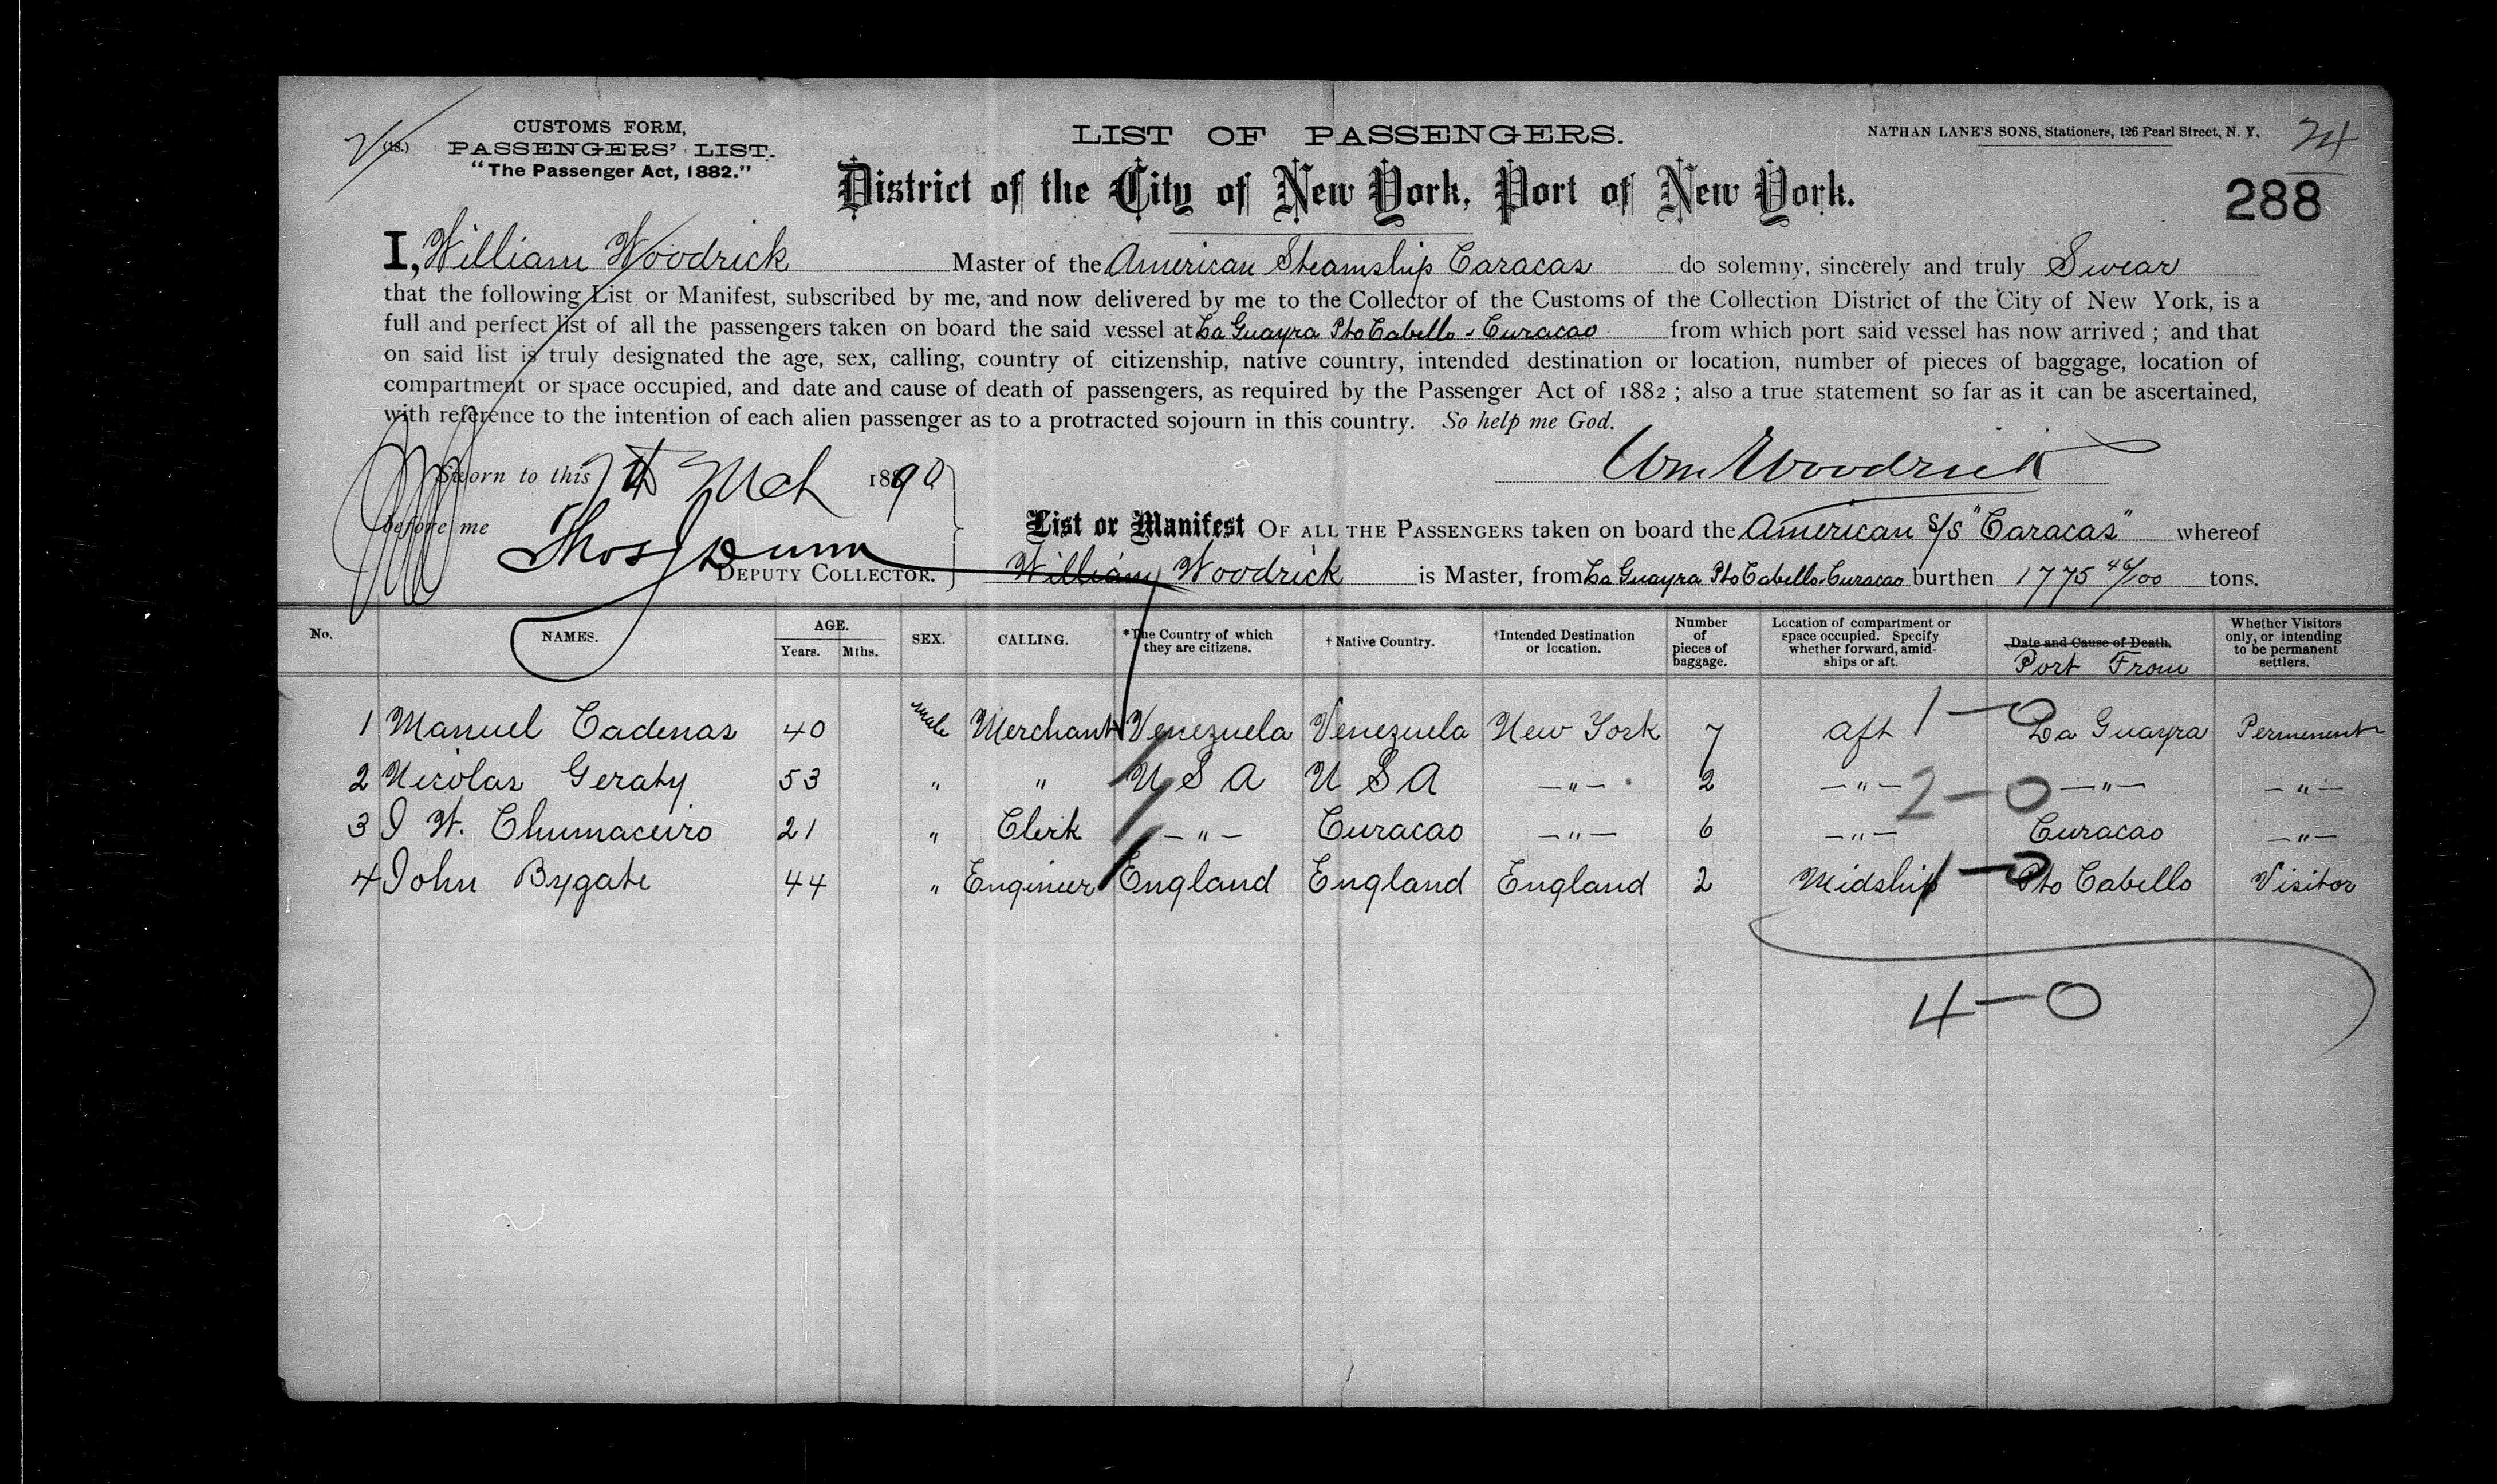 CUSTOMS FORM,
(18.) PASSENGERS' LIST.
"The Passenger Act, 1882."
LIST OF PASSENGERS.
NATHAN LANE'S SONS, Stationers, 126 Pearl Street, N. Y.
24
District of the City of New York, Port of New York.
288
I, William Woodrick Master of the American Steamship Caracas do solemny, sincerely and truly Swear
that the following List or Manifest, subscribed by me, and now delivered by me to the Collector of the Customs of the Collection District of the City of New York, is a
full and perfect list of all the passengers taken on board the said vessel at La Guayra Pto Cabello & Curacao from which port said vessel has now arrived ; and that
on said list is truly designated the age, sex, calling, country of citizenship, native country, intended destination or location, number of pieces of baggage, location of
compartment or space occupied, and date and cause of death of passengers, as required by the Passenger Act of 1882 ; also a true statement so far as it can be ascertained,
with reference to the intention of each alien passenger as to a protracted sojourn in this country. So help me God.
Wm Woodrick
Sworn to this 7th Mch 1890
before me Thos J Dunn
DEPUTY COLLECTOR.
List or Manifest OF ALL THE PASSENGERS taken on board the American S/S "Caracas" whereof
William Woodrick is Master, from La Guayra Pto Cabello Curacao burthen 1775 46/100 tons.
No. NAMES. AGE. Years. Mths. SEX. CALLING. *The Country of which they are citizens. † Native Country. †Intended Destination or location. Number of pieces of baggage. Location of compartment or space occupied. Specify whether forward, amidships or aft. Date and Cause of Death. Port From Whether Visitors only, or intending to be permanent settlers.
1 Manuel Cadenas 40 male Merchant Venezuela Venezuela New York 7 aft 1-0 La Guayra Permenent
2 Nicolas Geraty 53 " " U S A U S A -"- 2 -"- 2-0 -"- -"-
3 I W. Chumaceiro 21 " Clerk -"- Curacao -"- 6 -"- Curacao -"-
4 John Bygate 44 " Engineer England England England 2 Midship 1-0 Pto Cabello Visitor
4-0